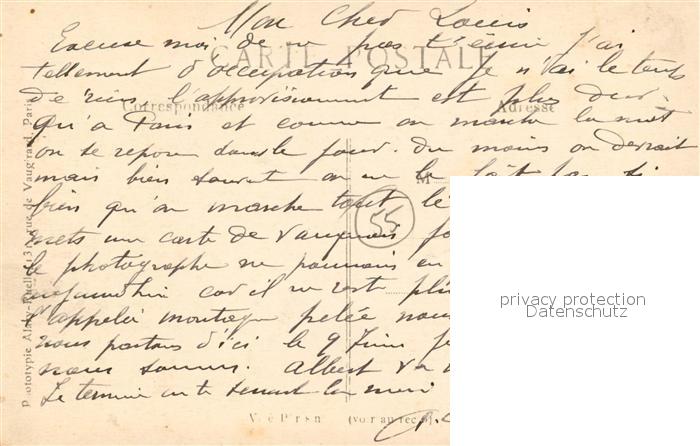 Mon Cher Louis
Excuse moi de ne pas t'écrir j'ai
CARTE POSTALE
tellement d'occupation que je n'ai le temps
de rien, l'approvisionnement est plus dur
Correspondance
Adresse
qu'a Paris et comme on marche la nuit
on se repose dans le jour. du moins on devrait
mais bien souvent on ne le
M
bien qu'on marche tout le
55
mets une carte de Vauquois
le photographe ne pouvais en
aujourdhui car il ne reste plus
l'appeler montagne pelée nous
nous partons d'ici le 9 Juin je
nous sommes. Albert va
Je termine en te serrant la main
Phototypie
rue de Vaugirard, Paris
privacy protection
Datenschutz